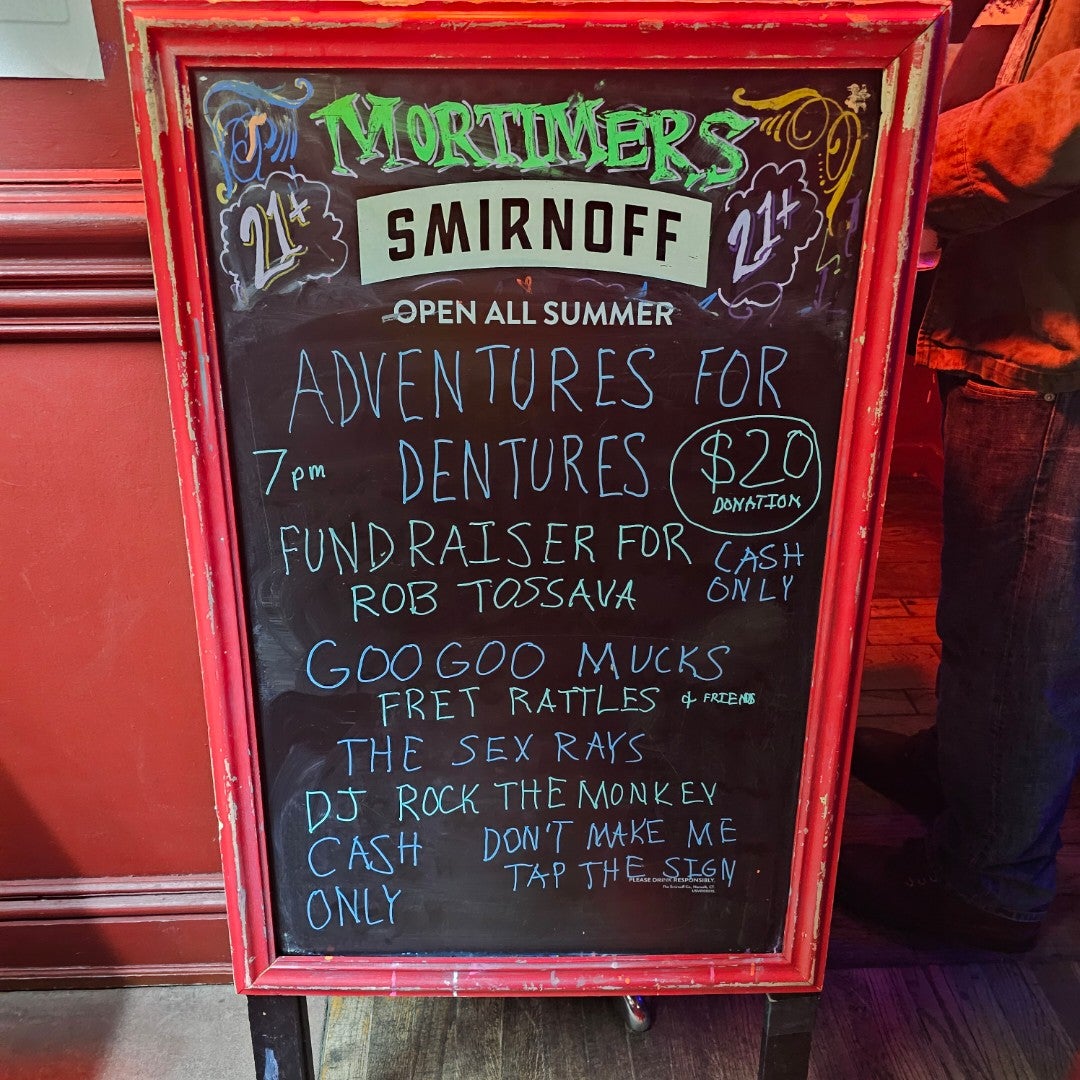 MORTIMERS
21+
SMIRNOFF
21+
OPEN ALL SUMMER
ADVENTURES FOR
7pm DENTURES $20
DONATION
FUNDRAISER FOR CASH
ROB TOSSAVA ONLY
GOO GOO MUCKS
FRET RATTLES & FRIENDS
THE SEX RAYS
DJ ROCK THE MONKEY
CASH DON'T MAKE ME
ONLY TAP THE SIGN
PLEASE DRINK RESPONSIBLY.